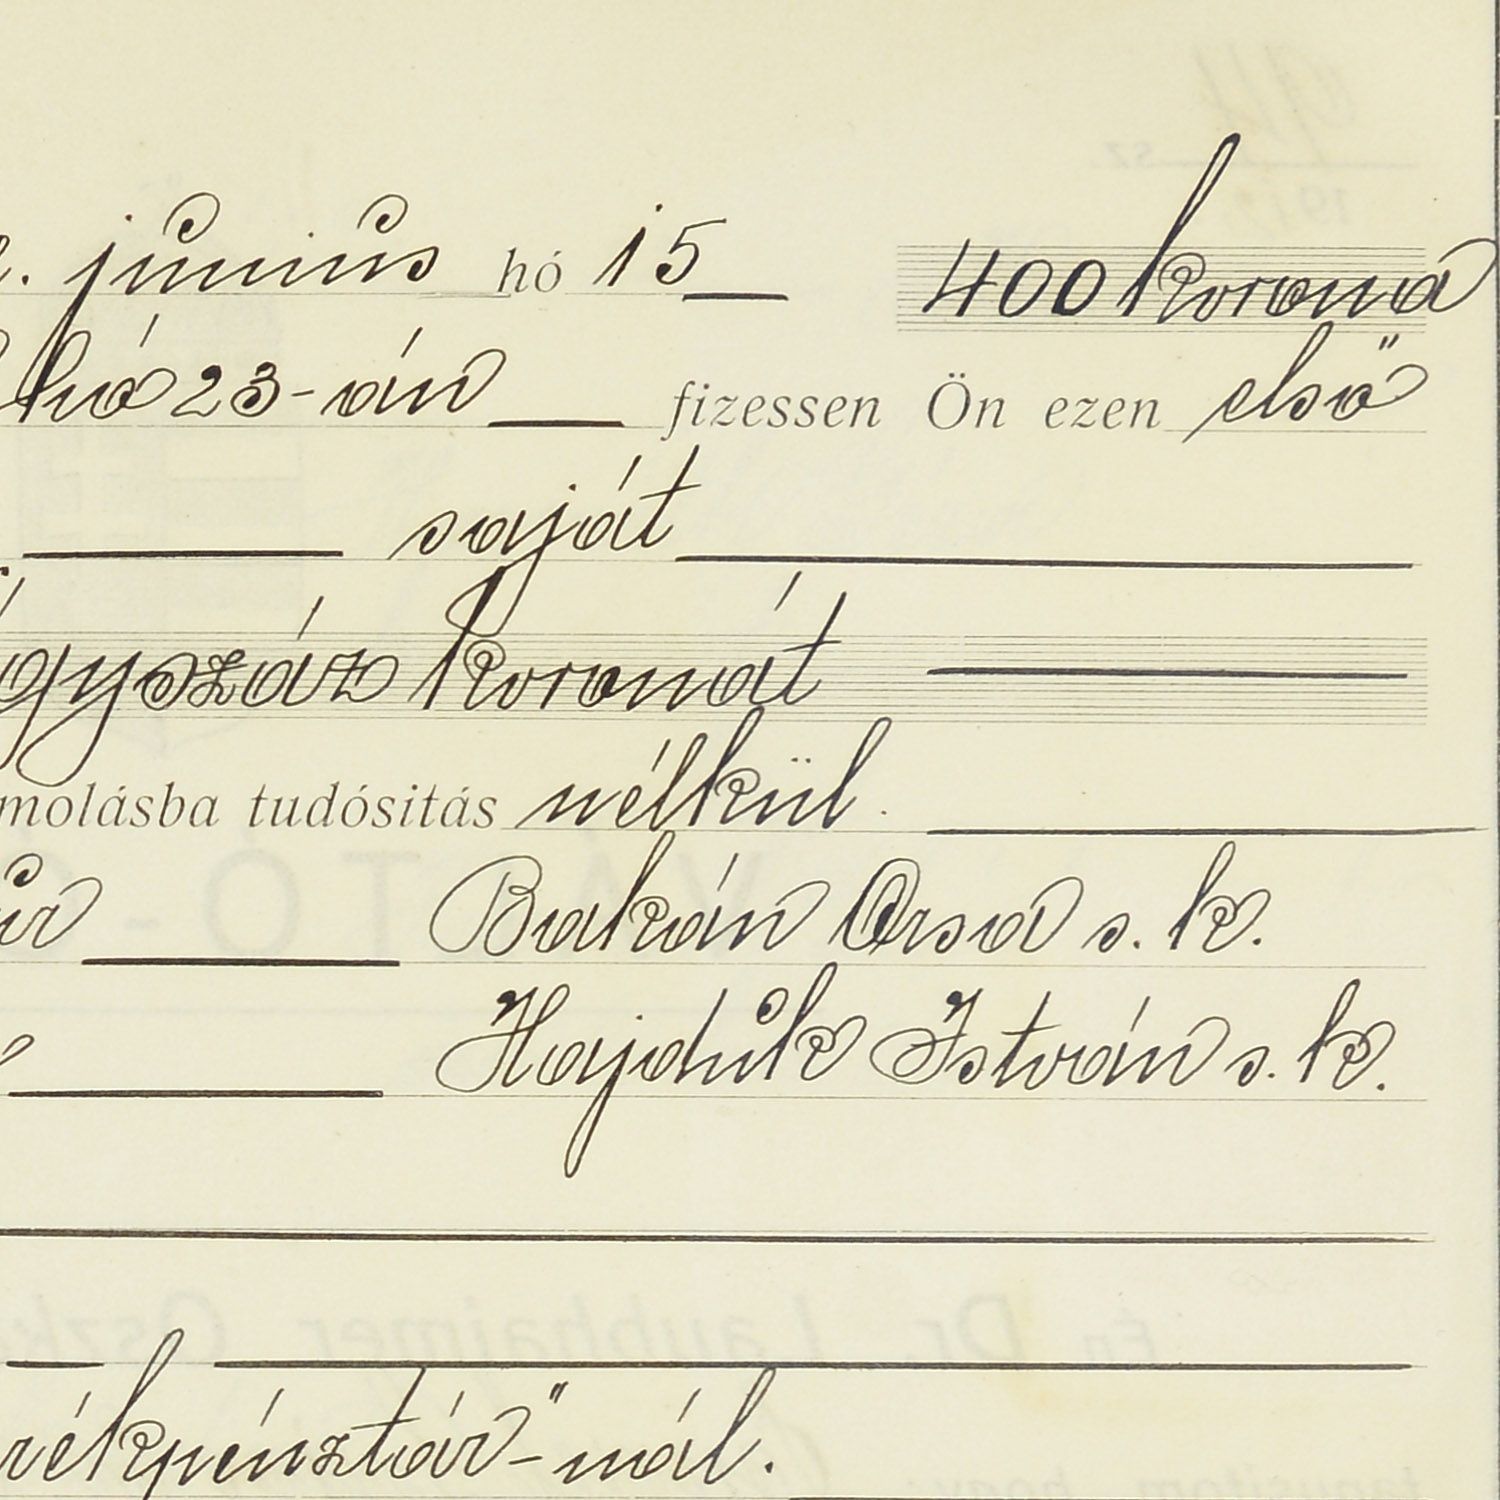 június hó 15 400 korona
hó 23-án fizessen Ön ezen első
saját
gyszáz koronát
molásba tudósitás nélkül.
Bakán Orsa s. k.
Hajduk István s. k.
rékpénztár"-nál.